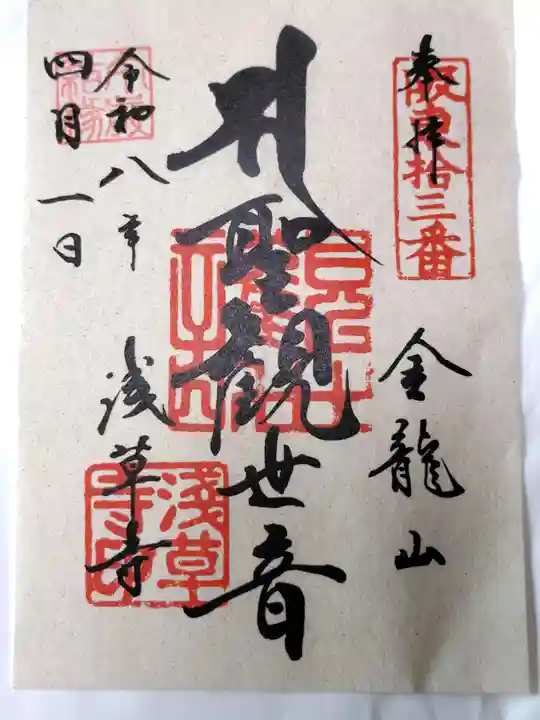 奉拝
坂東拾三番
金龍山
聖観世音
浅草寺
淺草寺印
令和八年
四月一日